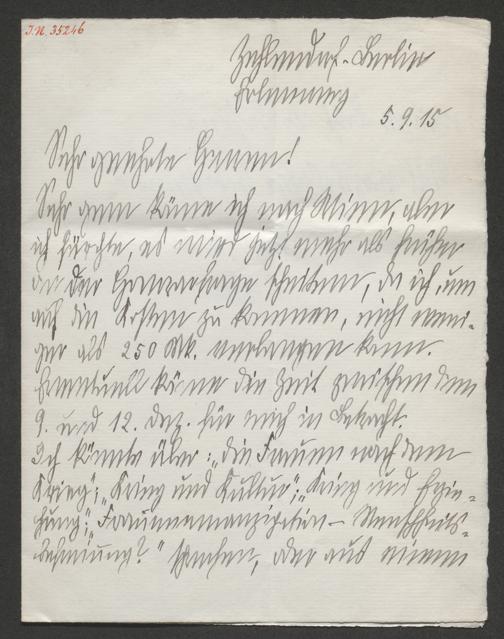 I.N. 35246
Zehlendorf-Berlin
Erlenweg
5.9.15
Sehr geehrte Herren!
Sehr gern käme ich nach Wien, aber
ich fürchte, es wird jetzt mehr als früher
an der Honorarfrage scheitern, da ich, um
auf die Kosten zu kommen, nicht weni-
ger als 250 Mk. verlangen kann.
Eventuell käme die Zeit zwischen dem
9. und 12. Dez. für mich in Betracht.
Ich könnte über: „die Frauen nach dem
Krieg"; „Krieg und Kultur"; „Krieg und Erzie-
hung"; „Frauenemanzipation – Menschheits-
befreiung?" sprechen, oder aus einem